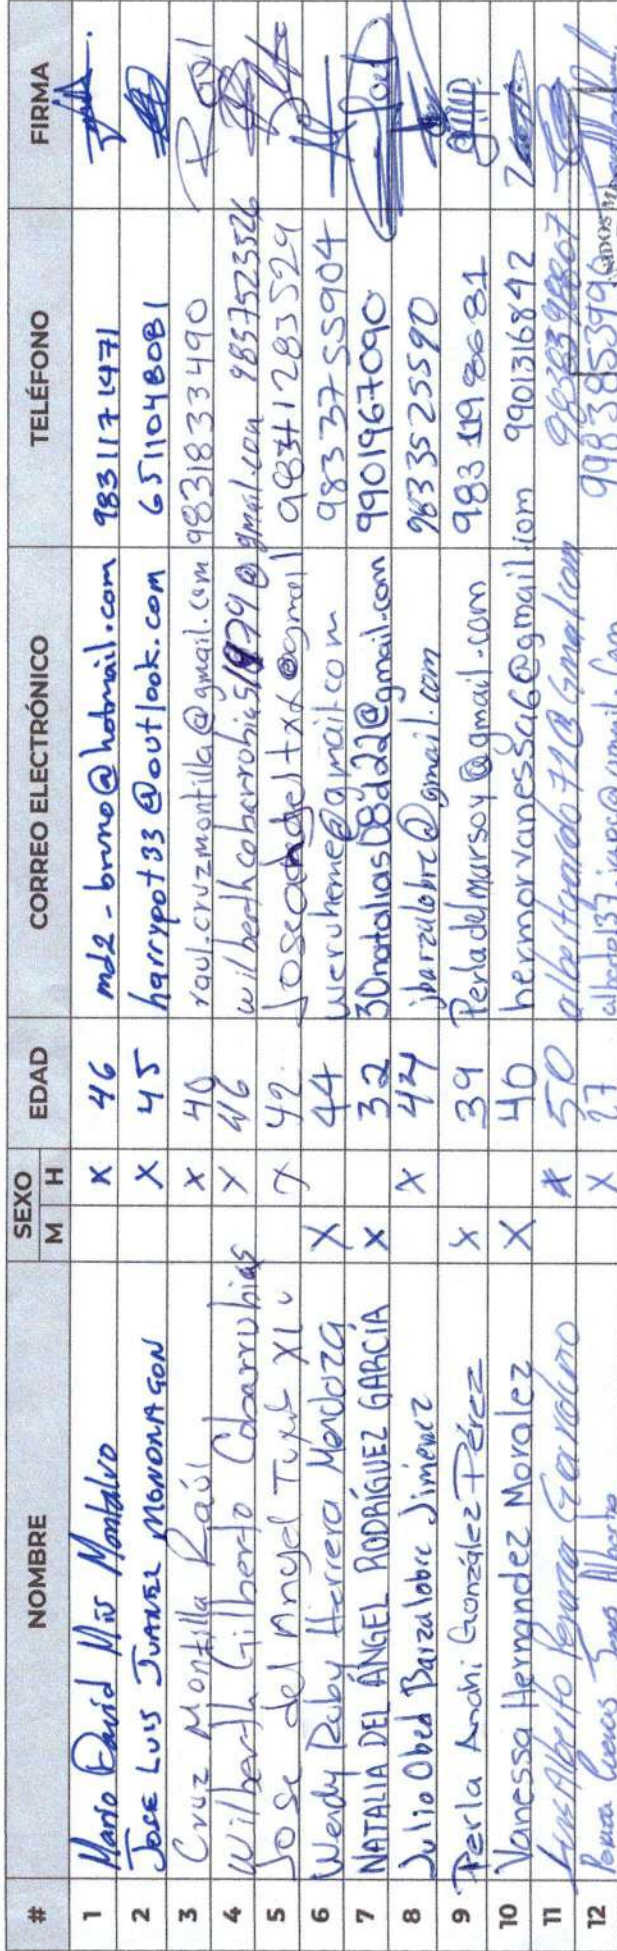 # NOMBRE SEXO M H EDAD CORREO ELECTRÓNICO TELÉFONO FIRMA
1 Mario David Mis Montalvo X 46 md2-bruno@hotmail.com 9831171471
2 JOSE LUIS JUAREZ MONDRAGON X 45 harrypot33@outlook.com 6511048081
3 Cruz Montilla Raúl X 40 raul.cruzmontilla@gmail.com 9831833490 Raul
4 Wilberth Gilberto Cobarrubias X 46 wilberthcobarrubias1979@gmail.com 9837523526
5 Jose del Angel X 42 9841283529
6 Wendy Ruby Herrera Mendoza X 44 weruhome@gmail.com 9833755904
7 NATALIA DEL ÁNGEL RODRÍGUEZ GARCÍA X 32 30natalias08d22@gmail.com 9901967090
8 Julio Obed Barzalobre Jiménez X 44 jbarzalobre@gmail.com 9833525590
9 Perla Anahi González Pérez X 39 Perladelmarsoy@gmail.com 9831198681
10 Vanessa Hernandez Moralez X 40 hermorvanessa6@gmail.com 9901316842
11 Luis Alberto X 50 9838398807
12 Alberto X 27 9983853996